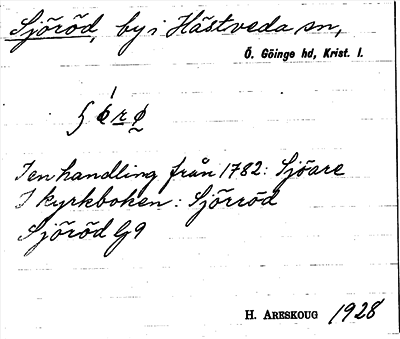 Sjöröd, by i Hästveda sn,
Ö. Göinge hd, Krist. l.
I en handling från 1782: Sjöare
I kyrkboken: Sjörröd
Sjöröd G9
H. Areskoug 1928